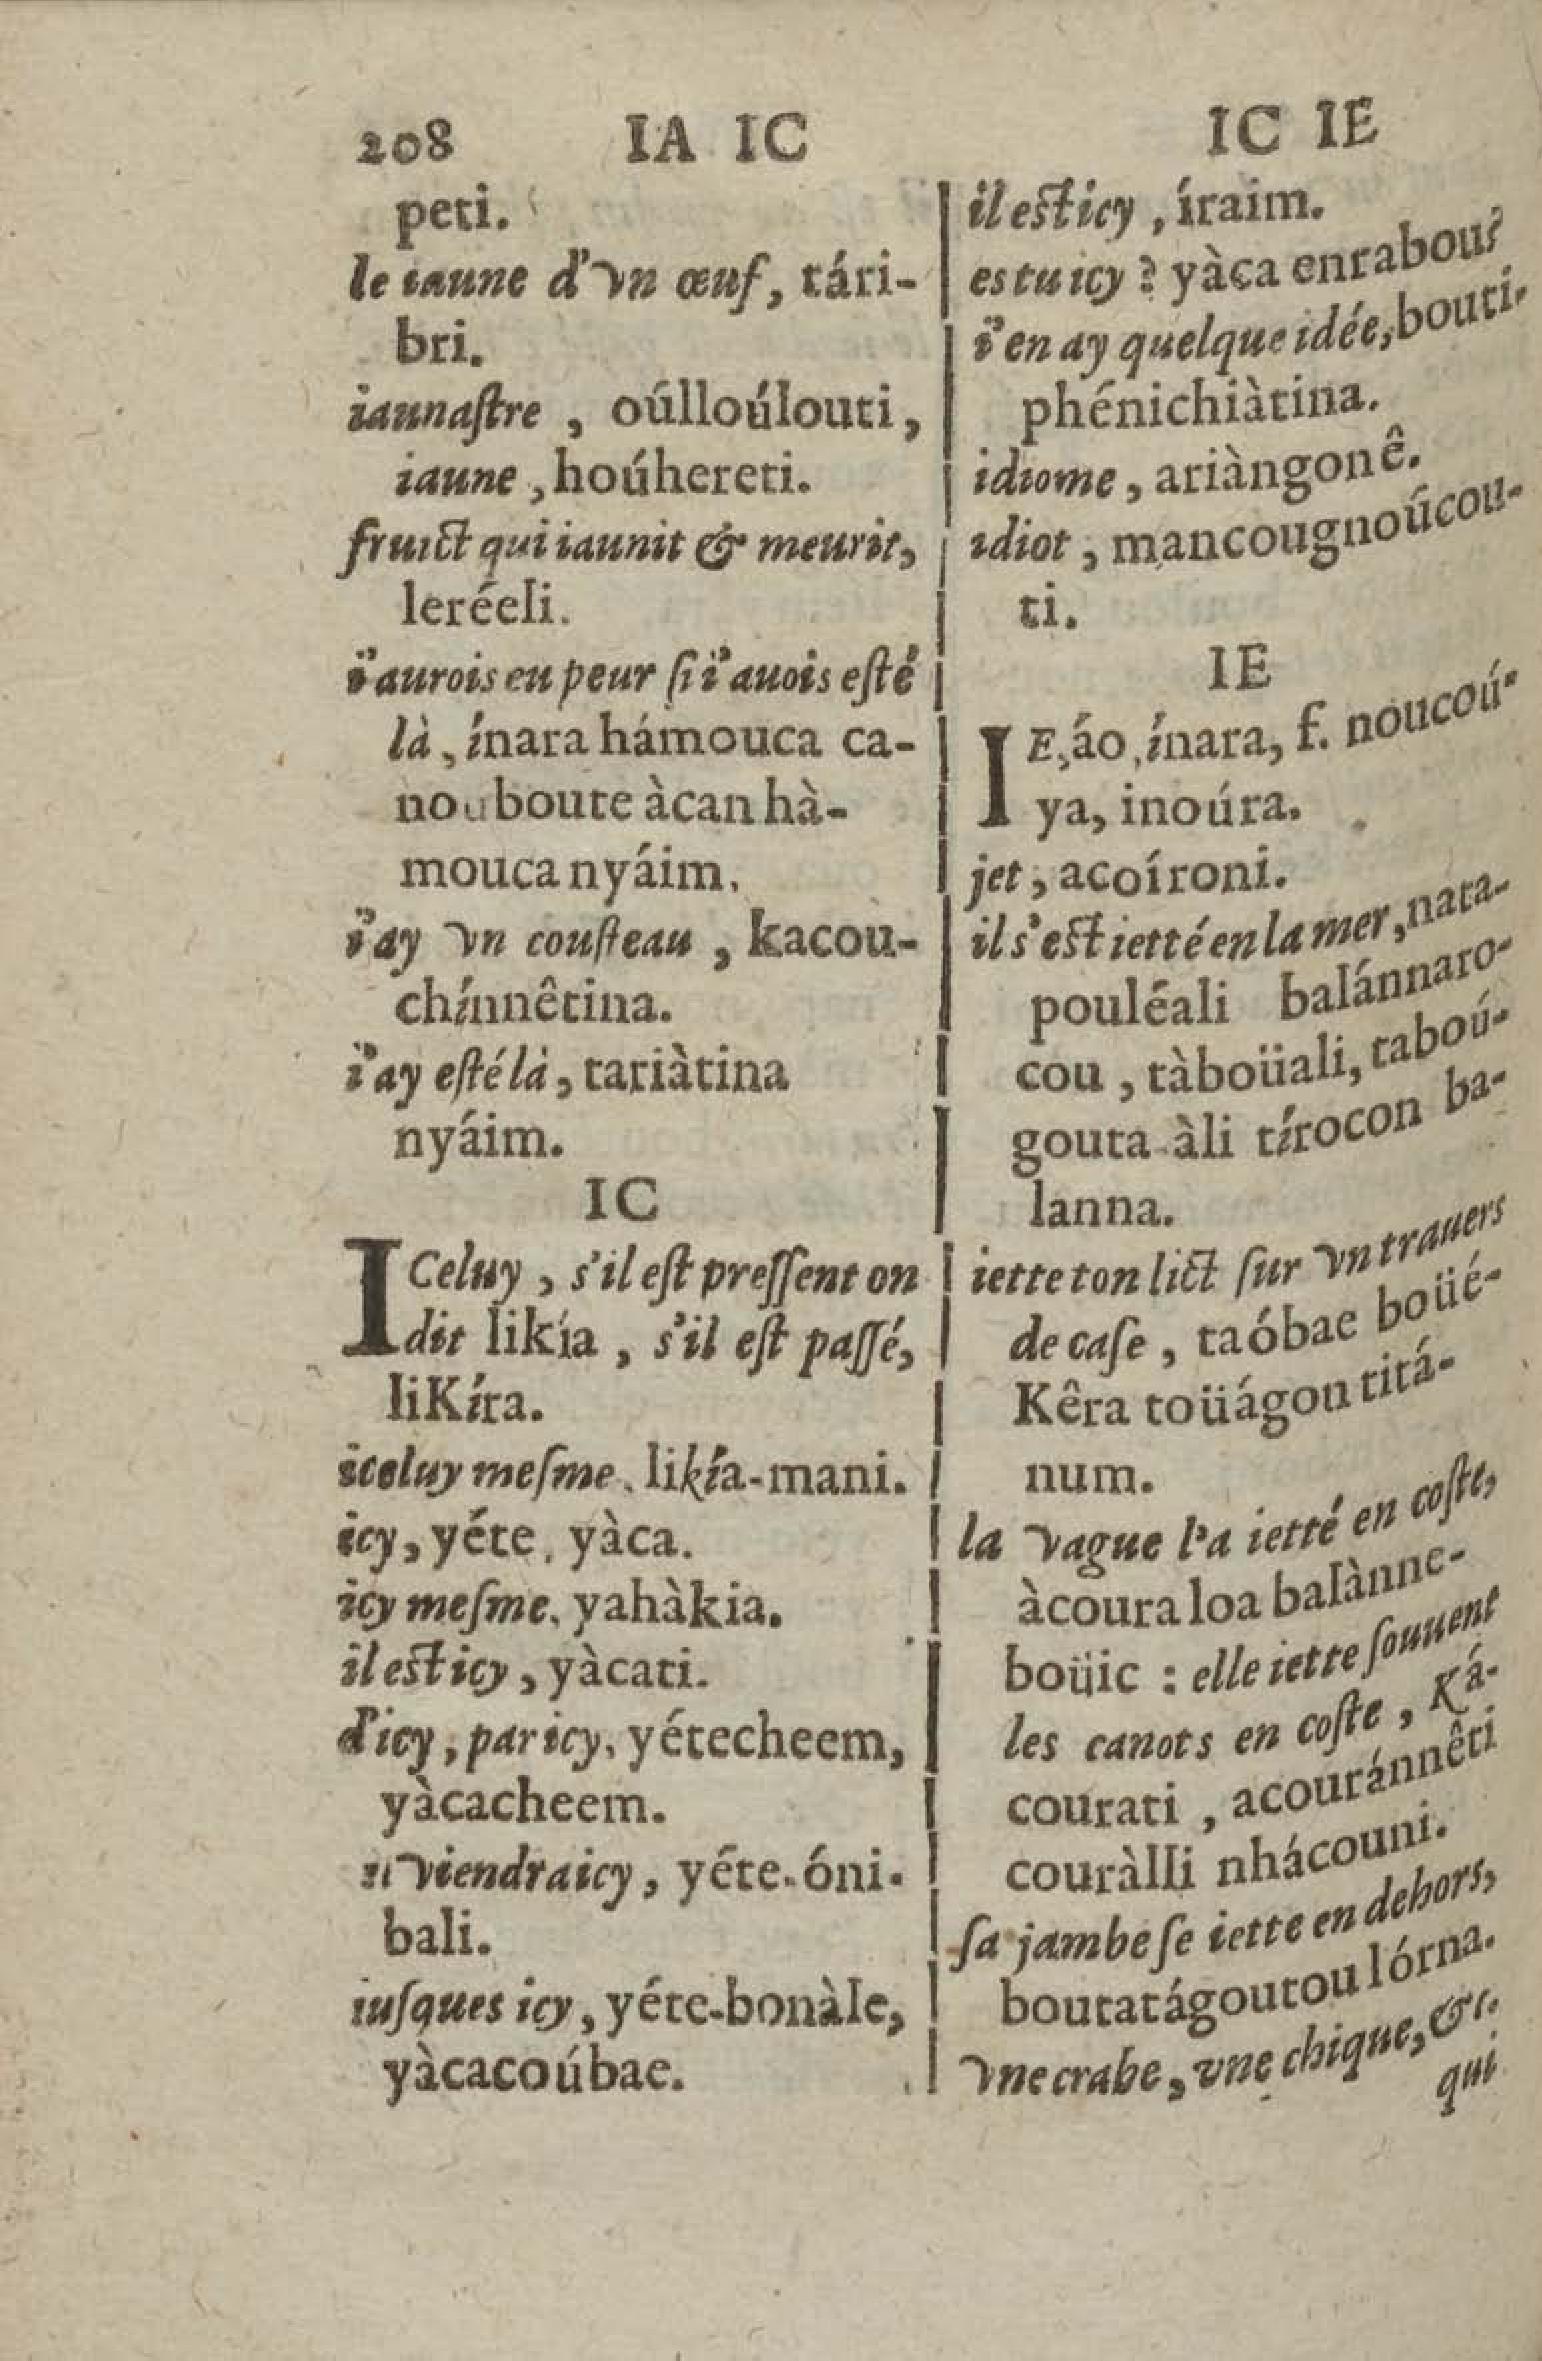 208 IA IC
peti.
le iaune d'vn œuf, tári-
bri.
iaunaſtre, oúlloúlouti,
iaune, hoúhereti.
fruict qui iaunit & meurit,
leréeli.
i'aurois eu peur ſi i'auois eſté
là, ínara hámouca ca-
nouboute àcan hà-
mouca nyáim.
i'ay vn couſteau, kacou-
chínnêtina.
i'ay eſté là, tariàtina
nyáim.
IC
ICeluy, s'il eſt preſſent on
dit likía, s'il eſt paſſé,
liKíra.
iceluy meſme, likía-mani.
icy, yéte, yàca.
icy meſme, yahàkia.
il est icy, yàcati.
d'icy, par icy, yétecheem,
yàcacheem.
viendra icy, yéte-óni-
bali.
iuſques icy, yéte-bonàle,
yàcacoúbae.
IC IE
il est icy, íraim.
es tu icy? yàca enrabou?
i'en ay quelque idée, bouti-
phénichiàtina.
idiome, ariàngonê.
idiot, mancougnoúcou-
ti.
IE
IE, áo, ínara, f. noucoú-
ya, inoúra.
jet, acoíroni.
il s'est ietté en la mer, nata-
pouléali balánnaro-
cou, tàboüali, taboú-
gouta-àli tírocon ba-
lanna.
iette ton lict ſur vn trauers
de caſe, taóbae boüé-
Kêra toüágon titá-
num.
la vague l'a ietté en coſte,
àcoura loa balànne-
boüic : elle iette ſouuent
les canots en coſte, Ká-
courati, acouránnêti
couràlli nhácouni.
ſa jambe ſe iette en dehors,
boutatágoutou lórna.
vne crabe, vne chique, &c.
qui